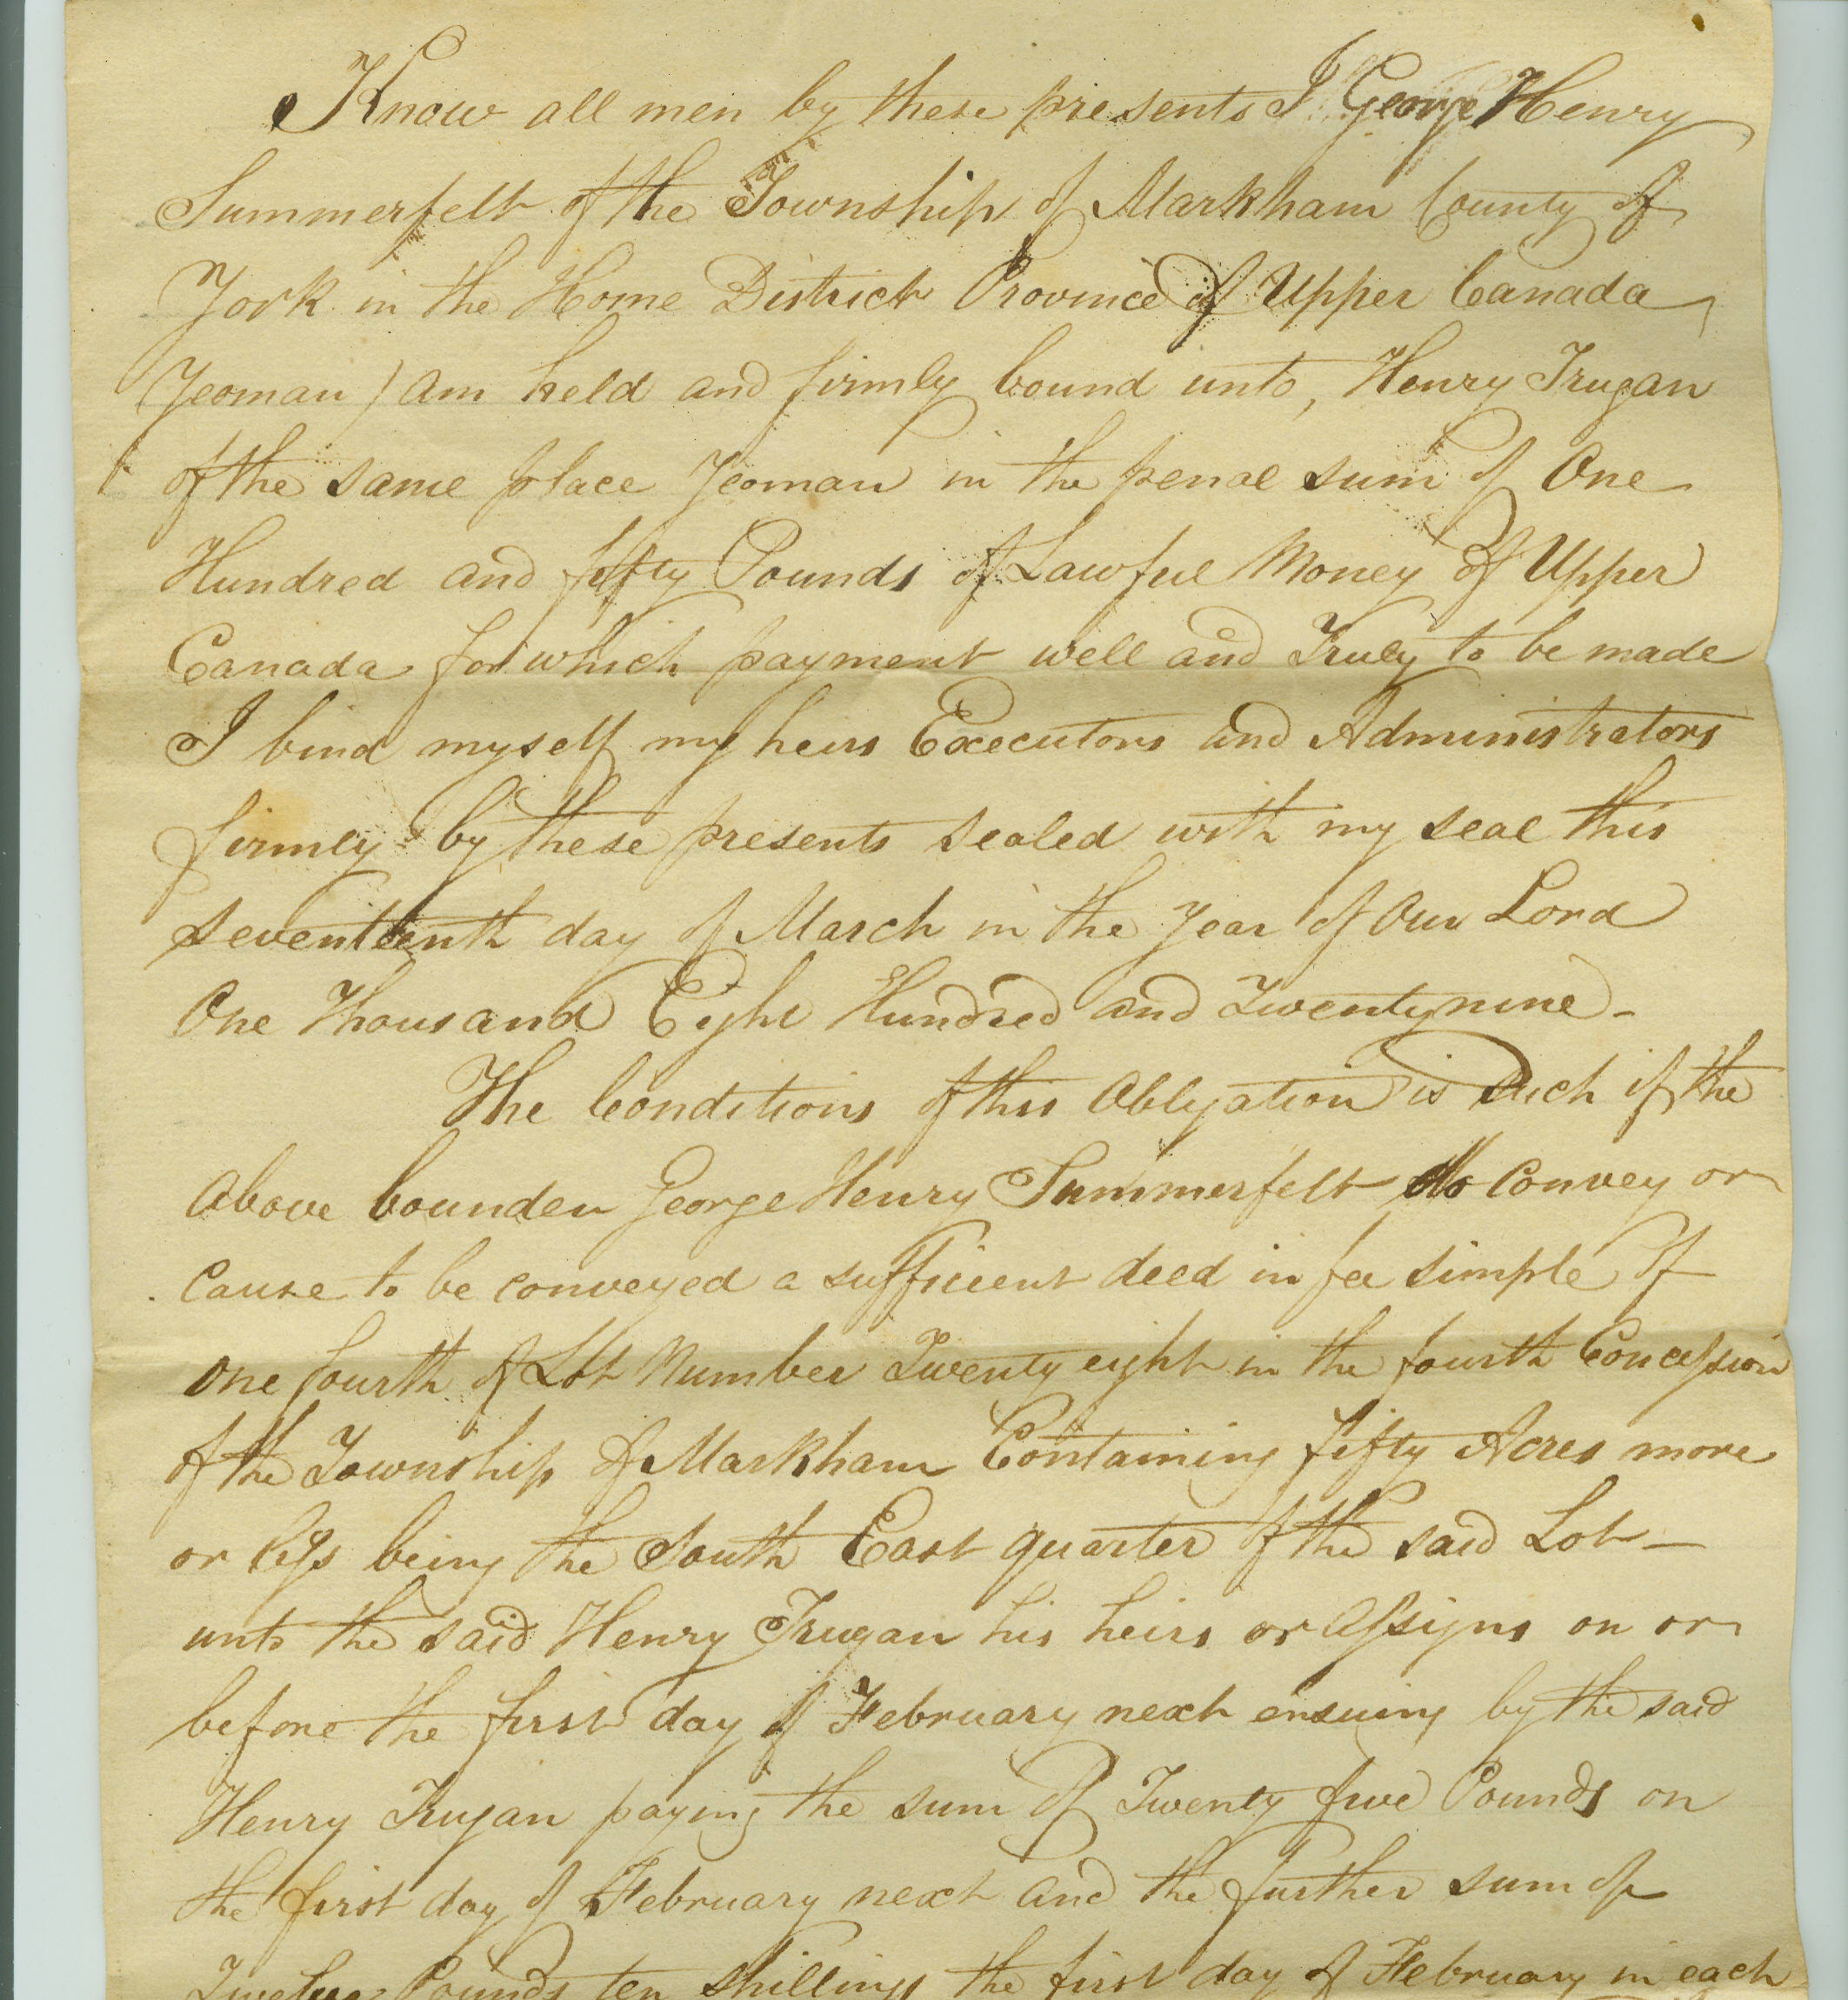 Know all men by these presents I George Henry
Summerfelt of the Township of Markham County of
York in the Home District Province of Upper Canada
(Yeoman) am held and firmly bound unto, Henry Trugan
of the same place Yeoman in the penal sum of One
Hundred and fifty Pounds of Lawful Money of Upper
Canada for which payment well and Truly to be made
I bind myself my heirs Executors and Administrators
firmly by these presents sealed with my seal this
seventeenth day of March in the year of Our Lord
One Thousand Eight Hundred and Twenty nine -
The Conditions of this Obligation is Such if the
above bounden George Henry Summerfelt do Convey or
Cause to be conveyed a sufficient deed in fee simple Of
One fourth of Lot Number Twenty eight in the fourth Concession
of the Township of Markham Containing fifty Acres more
or less being the South East quarter of the said Lot —
unto the said Henry Trugan his heirs or Assigns on or
before the first day of February next ensuing by the said
Henry Trugan paying the sum Of Twenty five Pounds on
the first day of February next and the further sum of
Twelve Pounds ten shillings the first day of February in each